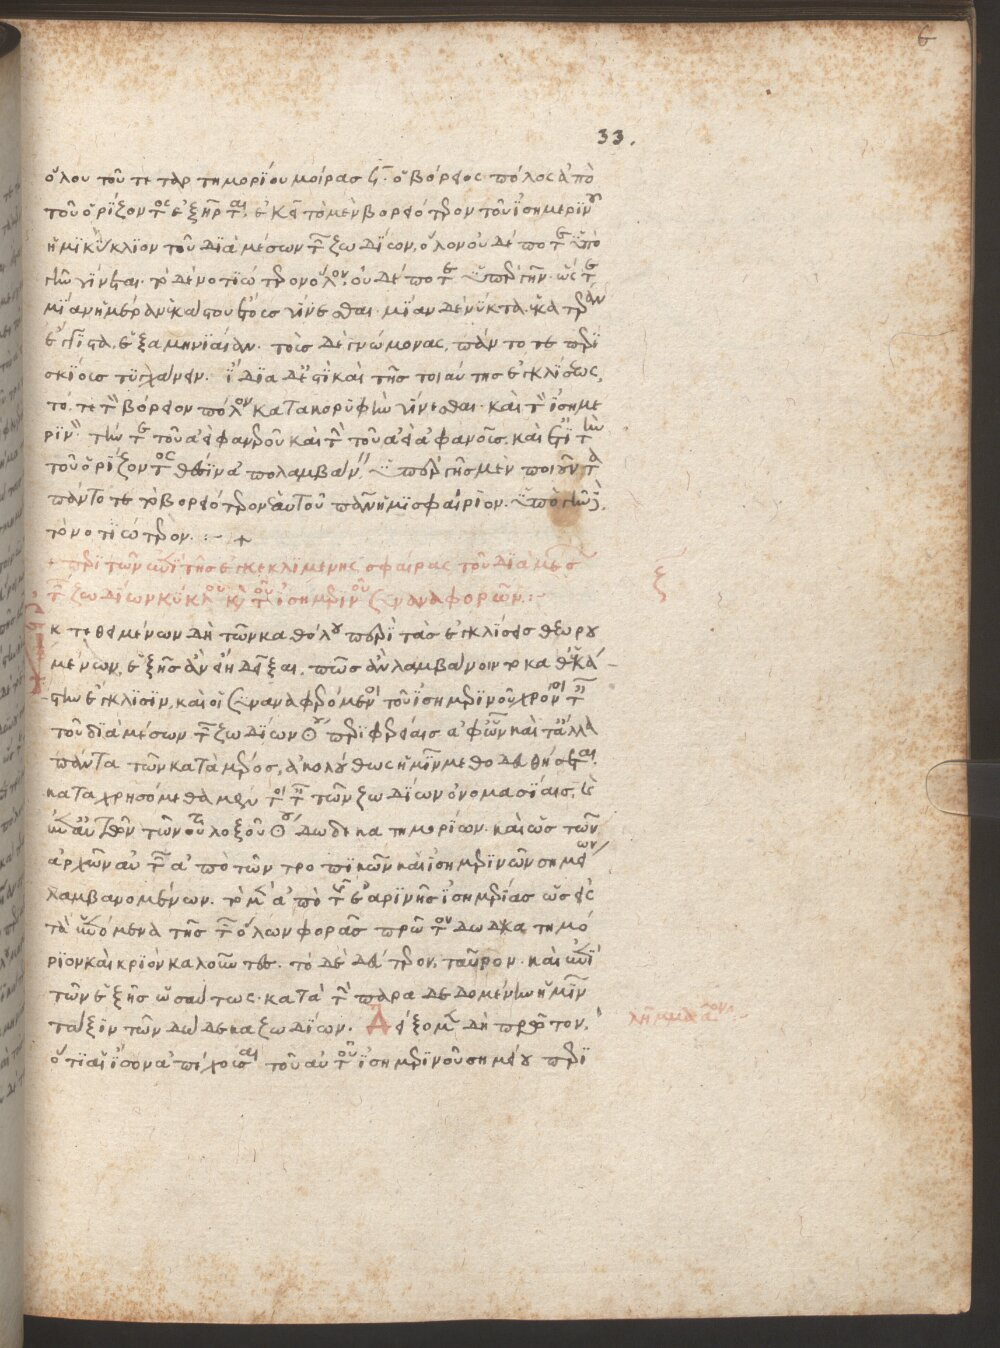 6
33.
ὅλου τοῦ τεταρτημορίου μοίρας ϟ. ὁ βόρειος πόλος ἀπὸ
τοῦ ὁρίζοντος ἐξῆρται. ἐκεῖ τὸ μὲν βορειότερον τοῦ ἰσημερινοῦ
ἡμικύκλιον τοῦ διὰ μέσων τῶν ζωδίων, ὅλον οὐδέποτε ὑπὸ
γῆν γίνεται. τὸ δὲ νοτιώτερον ὅλον, οὐδέποτε ὑπὲρ γῆν. ὥστε
μίαν ἡμέραν καθ' ἕκαστον ἔτος γίνεσθαι. μίαν δὲ νύκτα. ἑκατέραν
ἔγγιστα, ἑξαμηνιαίαν. τοὺς δὲ γνώμονας, πάντοτε περι
σκίους τυγχάνειν. ἴδια δέ ἐστι καὶ τῆς τοιαύτης ἐγκλίσεως,
τό, τε τὸν βόρειον πόλον κατὰ κορυφὴν γίνεσθαι. καὶ τὸν ἰσημε
ρινὸν τήν τε τοῦ ἀεὶ φανεροῦ καὶ τὴν τοῦ ἀεὶ ἀφανοῦς. καὶ ἔτι τὴν
τοῦ ὁρίζοντος θέσιν ἀπολαμβάνειν ὑπὲρ γῆς μὲν ποιοῦντα
πάντοτε τὸ βορειότερον ἑαυτοῦ πᾶν ἡμισφαίριον. ὑπὸ γῆν δὲ,
τὸ νοτιώτερον. :- +
+ περὶ τῶν ἐπὶ τῆς ἐγκεκλιμένης σφαίρας τοῦ διὰ μέσων
τῶν ζωδίων κύκλου καὶ τοῦ ἰσημερινοῦ συναναφορῶν. :-
ξ
κτεθειμένων δὴ τῶν καθόλου περὶ τὰς ἐγκλίσεις θεωρου
μένων, ἑξῆς ἂν εἴη δεῖξαι, πῶς ἂν λαμβάνοιντο καθ' ἑκά
στην ἔγκλισιν, καὶ οἱ συναναφερόμενοι τοῦ ἰσημερινοῦ χρόνοι ταῖς
τοῦ διὰ μέσων τῶν ζωδίων κύκλου περιφερείαις ἀφ' ὧν καὶ τἄλλα
πάντα τῶν κατὰ μέρος, ἀκολούθως ἡμῖν μεθοδευθήσεται.
καταχρησόμεθα μέντοι ταῖς τῶν ζωδίων ὀνομασίαις, καὶ
ἐπ' αὐτῶν τῶν τοῦ λοξοῦ κύκλου δωδεκατημορίων. καὶ ὡς τῶν
ἀρχῶν αὐτῶν ἀπὸ τῶν τροπικῶν καὶ ἰσημερινῶν σημείων
λαμβανομένων. τὸ μὲν ἀπὸ τῆς ἐαρινῆς ἰσημερίας ὡς εἰς
τὰ ἑπόμενα τῆς τῶν ὅλων φορᾶς πρῶτον δωδεκατημό
ριον καὶ κριὸν καλοῦντες. τὸ δὲ δεύτερον, ταῦρον. καὶ ἐπὶ
τῶν ἑξῆς ὡσαύτως. κατὰ τὴν παραδεδομένην ἡμῖν
τάξιν τῶν δώδεκα ζωδίων. Δείξομεν δὴ πρῶτον,
λῆμμα αον :-
ὅτι αἱ ἴσον ἀπέχουσαι τοῦ αὐτοῦ ἰσημερινοῦ σημείου περι